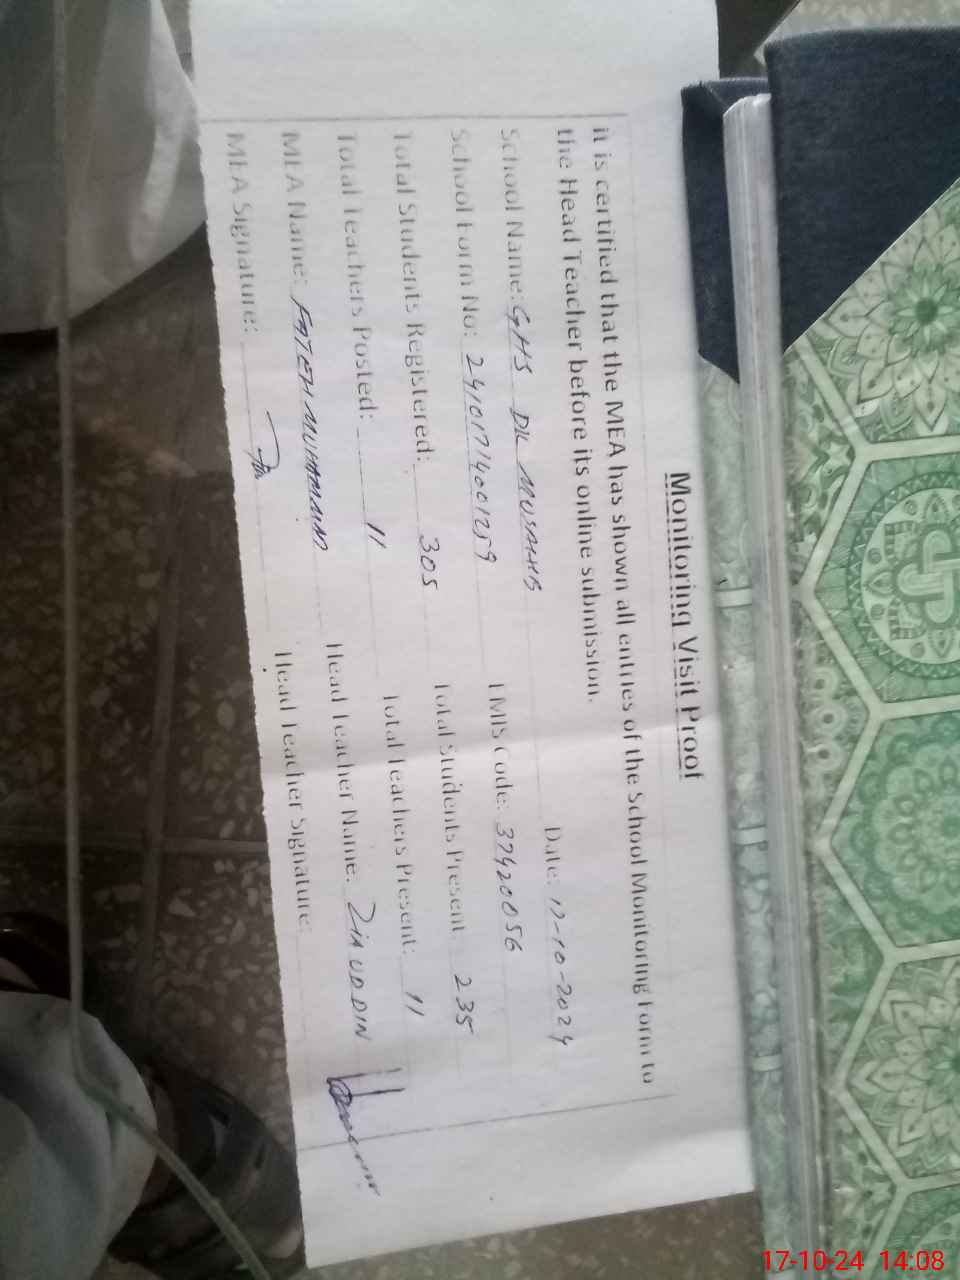 Monitoring Visit Proof
it is certified that the MEA has shown all entries of the School Monitoring Form to
the Head Teacher before its online submission.
Date: 17-10-2024
School Name: GHS DK
EMIS Code: 37420056
School Form No: 24101714001259
Total Students Present: 235
Total Students Registered: 305
Total Teachers Present: 11
Total Teachers Posted: 11
Head Teacher Name: ZIA UDDIN
MEA Name: FATEH MUHAMMAD
Head Teacher Signature:
MEA Signature:
17-10-24 14:08